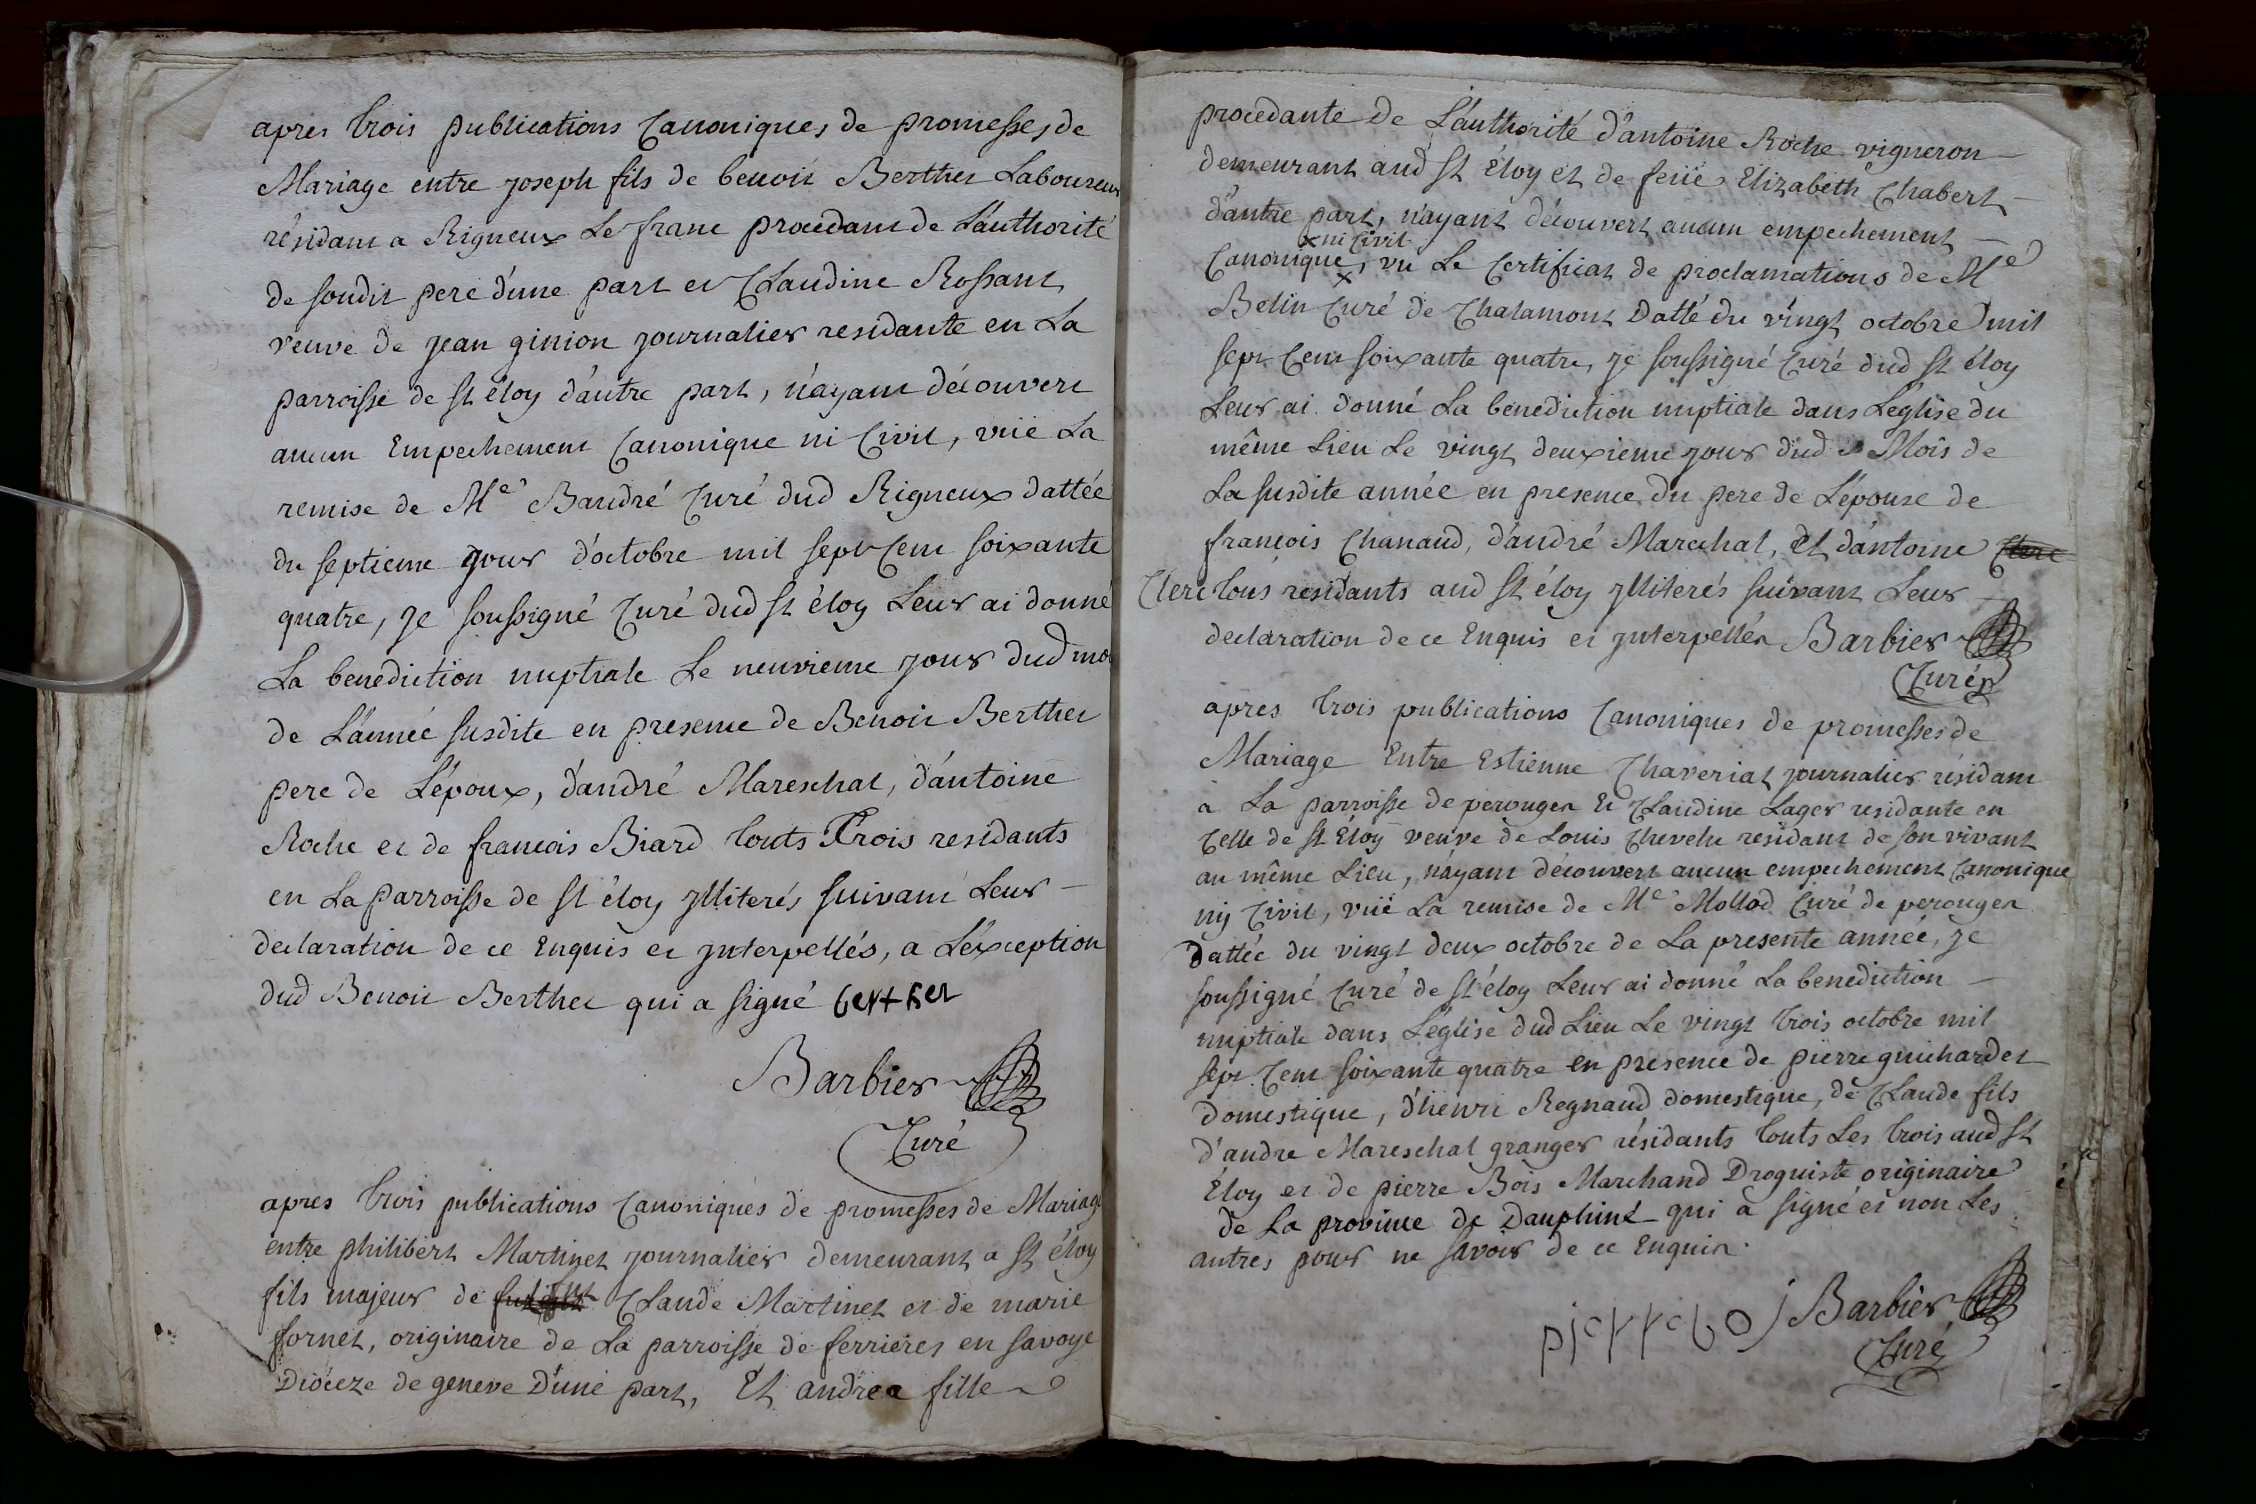 apres trois publications Canoniques de promesses de
Mariage entre joseph fils de benoit Berthet Laboureur
résidant a Rigneux Le franc procedant de L'authorité
de soudit pere d'une part et Claudine Rossant
veuve de jean ginion journalier residante en La
parroisse de st éloy d'autre part, n'ayant découvert
aucun Empechement Canonique ni Civil, vüe La
remise de Me Baudré Curé dud Rigneux dattée
du septieme jour d'octobre mil sept Cent soixante
quatre, je soussigné Curé dud st éloy Leur ai donné
La benediction nuptiale Le neuvieme jour dud moi
de L'année susdite en presence de Benoit Berthet
pere de L'époux, d'andré Mareschal, d'antoine
Roche et de francois Biard touts Trois residants
en La parroisse de st éloy jlliterés suivant Leur
declaration de ce Enquis et jnterpellés, a L'exception
dud Benoit Berthet qui a signé berther
Barbier
Curé
apres trois publications Canoniques de promesses de Mariage
entre philibert Martinet journalier demeurant a st éloy
fils majeur de Claude Martinet et de marie
fornet, originaire de La parroisse de ferrieres en savoye
Dioceze de geneve D'une part, Et andrea fille
procedante de L'authorité d'antoine Roche vigneron
demeurant aud st Eloy et de feüe Elizabeth Chabert
d'autre part, n'ayant découvert aucun empechement
x ni Civil
Canonique x, vu Le Certificat de proclamations de Me
Belin Curé de Chalamont Datté du vingt octobre mil
sept Cent soixante quatre, je soussigné Curé dud st éloy
Leur ai donné La benediction nuptiale dans L'eglise du
même Lieu Le vingt deuxieme jour dud Mois de
La susdite année en presence du pere de L'épouse de
francois Chanaud, d'andré Marechal, Et d'antoine Clerc
Clerc tous residants aud st éloy jlliterés suivant Leur
declaration de ce Enquis et jnterpellés Barbier
Curé
apres trois publications Canoniques de promesses de
Mariage Entre Estienne Chaveriat journalier résidant
a La parroisse de perouges Et Claudine Lager residante en
Celle de st Eloy veuve de Louis Chevelu residant de son vivant
au même Lieu, n'ayant découvert aucun empechement Canonique
nij Civil, vüe La remise de Me Mollod Curé de perouges
dattée du vingt deux octobre de La presente année, je
soussigné Curé de st éloy Leur ai donné La benediction
nuptiale dans L'eglise dud Lieu Le vingt trois octobre mil
sept Cent soixante quatre en presence de pierre guichardet
domestique, d'henri Regnaud domestique, de Claude fils
d'andre Mareschal granger résidants touts Les trois aud st
Eloy et de pierre Bois Marchand Droguiste originaire
de La province de Dauphiné qui a signé et non Les
autres pour ne savoir de ce Enquis.
pierreboj Barbier
Curé